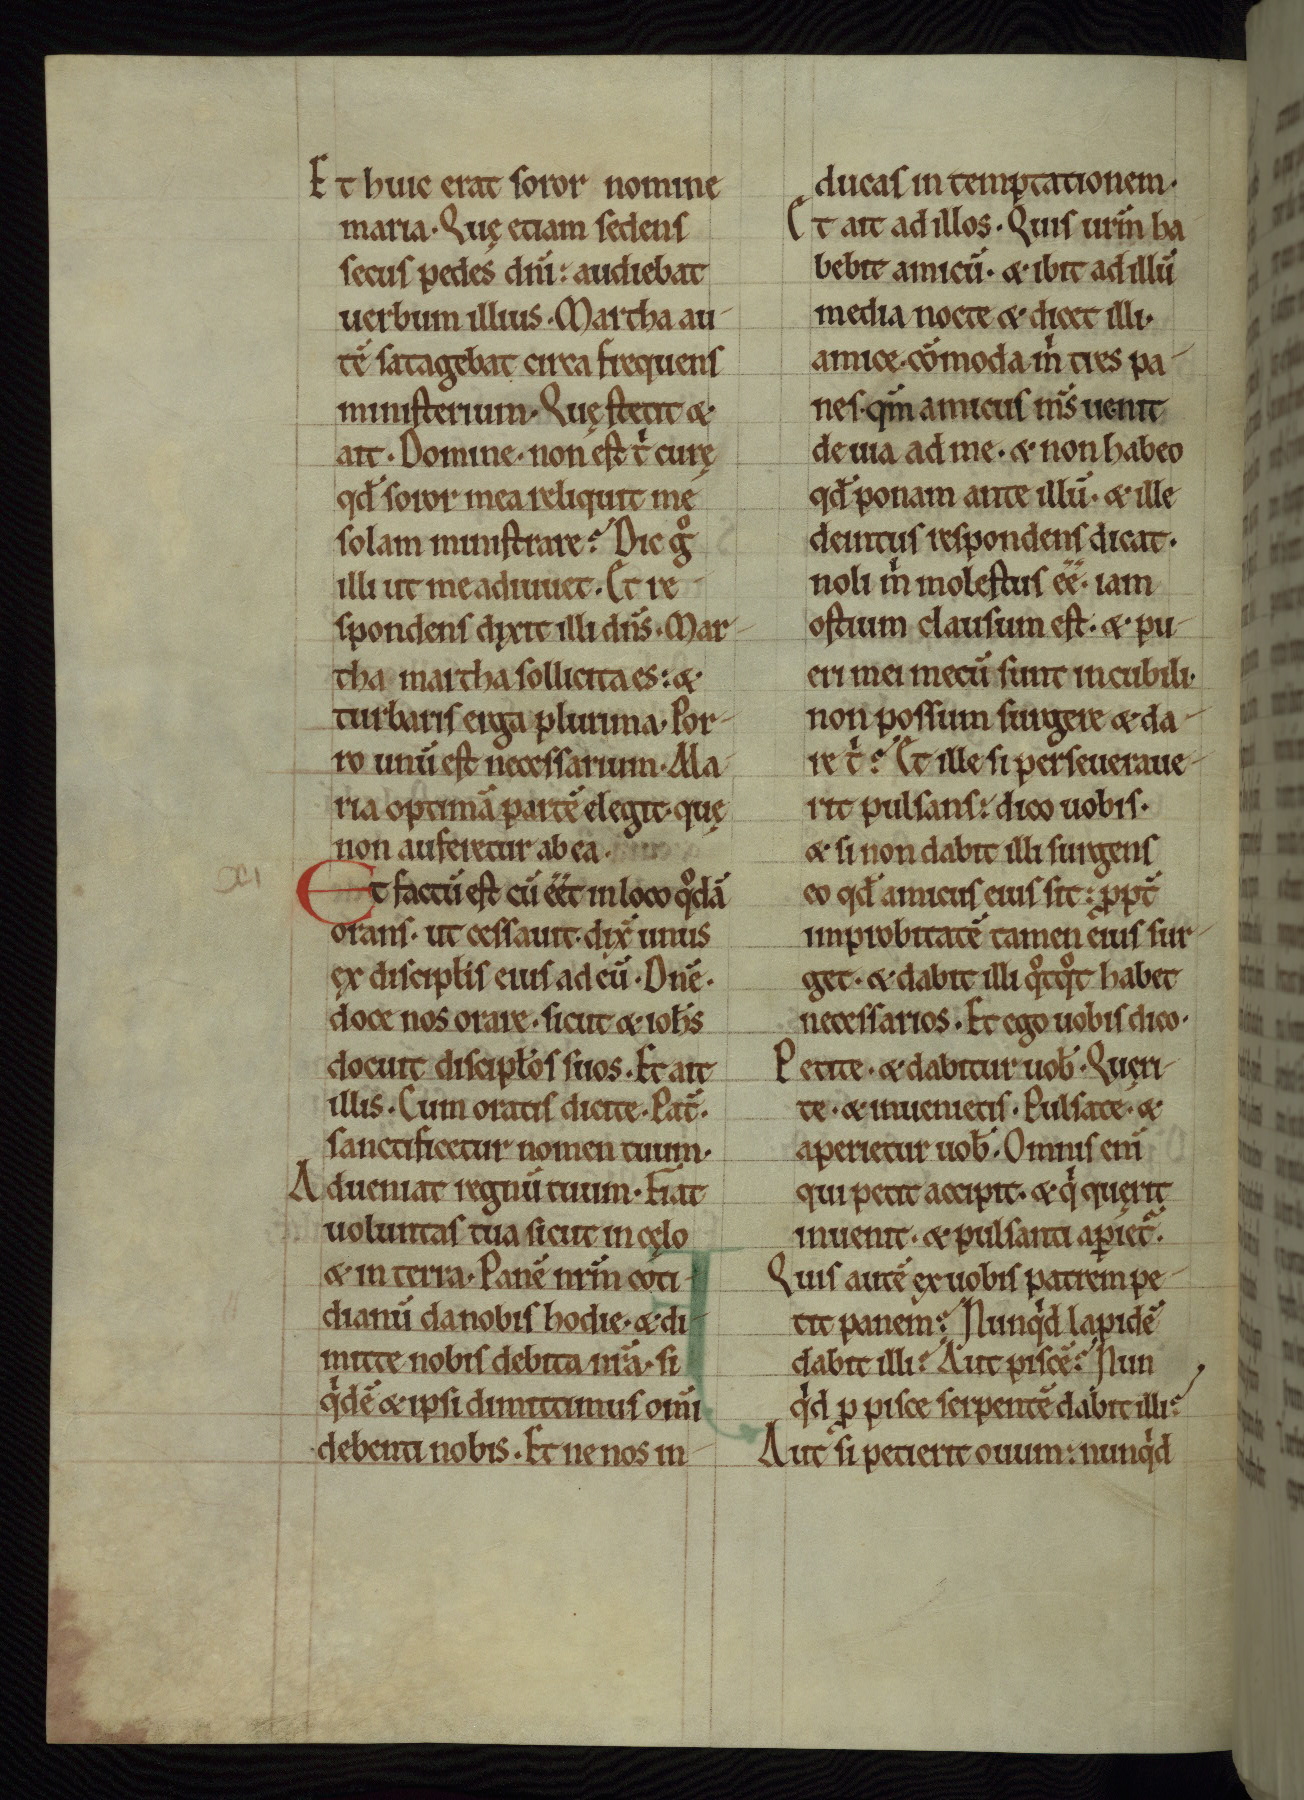 Et huic erat soror nomine
maria. Quę etiam sedens
secus pedes dn̄i: audiebat
uerbum illius. Martha au-
tē satagebat circa frequens
ministerium. Quę stetit &
ait. Domine. non est t̍ curę
qd̄ soror mea reliquit me
solam ministrare? Dic gͦ
illi ut me adiuuet. Et re
spondens dixit illi dn̄s. Mar-
tha martha sollicita es: &
turbaris erga plurima. Por-
ro unū est necessarium. Ma-
ria optimā partē elegit. quę
non auferetur ab ea.
xi
Et factū est cū eēt in loco qͦdā
orans. ut cessauit. dix̄ unus
ex discipłis eius ad eū. Dn̄e.
doce nos orare. sicut & ioħs
docuit discipłos suos. Et ait
illis. Cum oratis dicite. Pat̄.
sanctificetur nomen tuum.
Adueniat regnū tuum. Fiat
uoluntas tua sicut in cęlo
& in terra. Panē nrm̄ coti-
dianū da nobis hodie. & di-
mitte nobis debita nr̄a. si
qͥdē & ipsi dimittimus om̄i
debenti nobis. Et ne nos in-
ducas in temptationem.
Et ait ad illos. Quis urm̄ ha
bebit amicū. & ibit ad illū
media nocte & dicet illi.
amice. cōmoda m̍ tres pa-
nes. qm̄ amicus ms̄ uenit
de uia ad me. & non habeo
qd̄ ponam ante illū. & ille
deintus respondens dicat.
noli m̍ molestus eē. iam
ostium clausum est. & pu-
eri mei mecū sunt in cubili.
non possum surgere & da-
re t̍? Et ille si perseueraue-
rit pulsans: dico uobis.
& si non dabit illi surgens
eo qd̄ amicus eius sit: ꝓpt̄
improbitatē tamen eius sur-
get. & dabit illi qͦtqͦt habet
necessarios. Et ego uobis dico.
Petite. & dabitur uob̄. Quęri-
te. & inuenietis. Pulsate. &
aperietur uob̄. Omnis eni̅
qui petit accipit. & qͥ quęrit
inuenit. & pulsanti apiet̄.
Quis autē ex uobis patrem pe-
tit panem? Nunqͥd lapidē
dabit illi? Aut piscē? Nun
qͥd ꝓ pisce serpentē dabit illi?
Aut si petierit ouum: nunqͥd